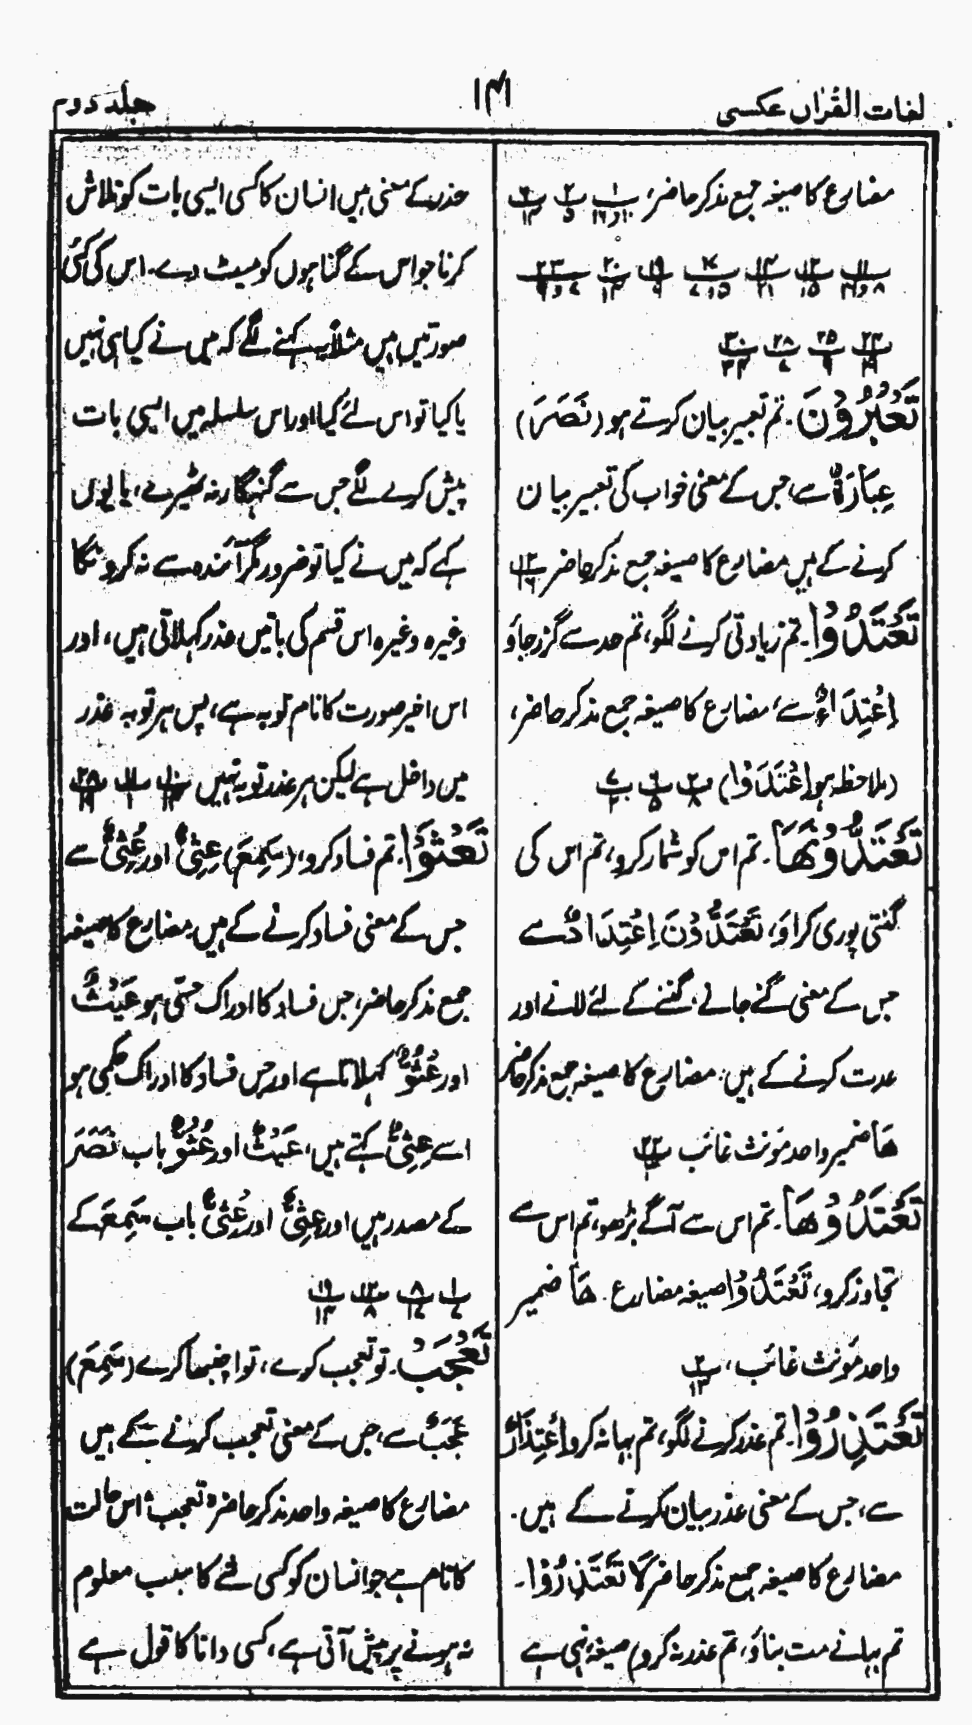 لغات القرآن عکسی
۱۴۱
جلد دوم
مضارع کا صیغہ جمع مذکر حاضر،
تَعْبُرُوْنَ۔ تم تعبیر بیان کرتے ہو (نَصَرَ)
عِبَارَۃٌ سے، جس کے معنی خواب کی تعبیر بیان
کرنے کے ہیں مضارع کا صیغہ جمع مذکر حاضر
تَعْتَدُوْا۔ تم زیادتی کرنے لگو، تم حد سے گزر جاؤ
اِعْتِدَاءٌ سے، مضارع کا صیغہ جمع مذکر حاضر،
(ملاحظہ ہو اِعْتَدَوْا)
تَعْتَدُّوْنَهَا۔ تم اس کو شمار کرو، تم اس کی
گنتی پوری کراؤ، تَعْتَدُّوْنَ اِعْتِدَادٌ سے
جس کے معنی گنے جانے، گننے کے لئے لانے اور
عدت کرنے کے ہیں۔ مضارع کا صیغہ جمع مذکر حاضر
هَا ضمیر واحد مؤنث غائب
تَعْتَدُوْهَا۔ تم اس سے آگے بڑھو، تم اس سے
تجاوز کرو، تَعْتَدُوْا صیغہ مضارع۔ هَا ضمیر
واحد مؤنث غائب،
تَعْتَذِرُوْا۔ تم عذر کرنے لگو، تم بہانہ کرو اِعْتِذَارٌ
سے، جس کے معنی عذر بیان کرنے کے ہیں۔
مضارع کا صیغہ جمع مذکر حاضر لَا تَعْتَذِرُوْا۔
تم بہانے مت بناؤ، تم عذر نہ کرو، صیغہ نہی ہے
حذر کے معنی ہیں انسان کا کسی ایسی بات کو تلاش
کرنا جو اس کے گناہوں کو میٹ دے۔ اس کی کئی
صورتیں ہیں مثلاً یہ کہنے لگے کہ میں نے کیا ہی نہیں
یا کیا تو اس لئے کیا اور اس سلسلہ میں ایسی بات
پیش کرنے لگے جس سے گنہگار نہ ٹھیرے، یا یوں
کہے کہ میں نے کیا تو ضرور مگر آئندہ سے نہ کرونگا
وغیرہ وغیرہ اس قسم کی باتیں عذر کہلاتی ہیں، اور
اس اخیر صورت کا نام توبہ ہے، پس ہر توبہ عذر
میں داخل ہے لیکن ہر عذر توبہ نہیں
تَعْثَوْا۔ تم فساد کرو، (سَمِعَ) عِثِیٌّ اور عُثِیٌّ سے
جس کے معنی فساد کرنے کے ہیں مضارع کا صیغہ
جمع مذکر حاضر، جس فساد کا ادراک حسّی ہو عَیْثٌ
اور عُثُوٌّ کہلاتا ہے اور جس فساد کا ادراک حکمی ہو
اسے عِثِیٌّ کہتے ہیں، عَیْثٌ اور عُثُوٌّ باب نَصَرَ
کے مصدر ہیں اور عِثِیٌّ اور عُثِیٌّ باب سَمِعَ کے
تَعْجَبْ۔ تو تعجب کرے، تو اچنبھا کرے (سَمِعَ)
عَجَبٌ سے، جس کے معنی تعجب کرنے کے ہیں
مضارع کا صیغہ واحد مذکر حاضر، تعجب اس حالت
کا نام ہے جو انسان کو کسی شے کا سبب معلوم
نہ ہونے پر پیش آتی ہے، کسی دانا کا قول ہے